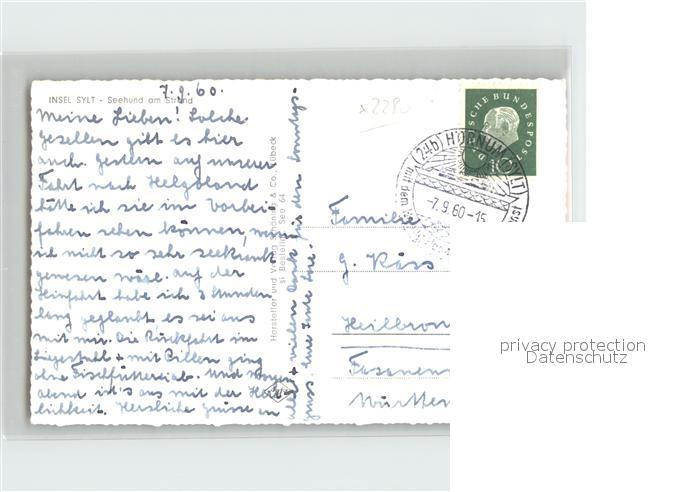 7.9.60.
INSEL SYLT - Seehund am Strand
Meine Lieben! Solche
Gesellen gibt es hier
auch. Gestern auf unserer
Fahrt nach Helgoland
hätte ich sie im Vorbei-
fahren sehen können, wenn
ich nicht so sehr seekrank
gewesen wäre. Auf der
Hinfahrt habe ich 3 Stunden
lang geglaubt es sei aus
mit mir. Die Rückfahrt im
Liegestuhl + mit Pillen ging
ohne Fischfütterei ab. Und morgen
abend ist's aus mit der Herr-
lichkeit. Herzliche Grüsse an
alle + vielen Dank für den Sonntags-
gruss. Eure Tante
Hersteller und Verlag Schöning & Co., Lübeck
Bestell See 64
x2280
DEUTSCHE BUNDESPOST
(24b) HÖRNUM (SYLT)
-7.9.60-15
Familie
G. Käss
Heilbronn
Fasanen
Württem
privacy protection
Datenschutz